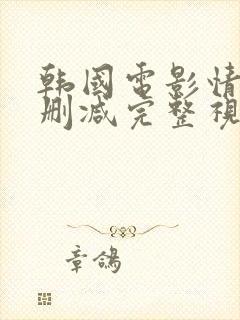 韩國電影情
删减完整視
章鴿